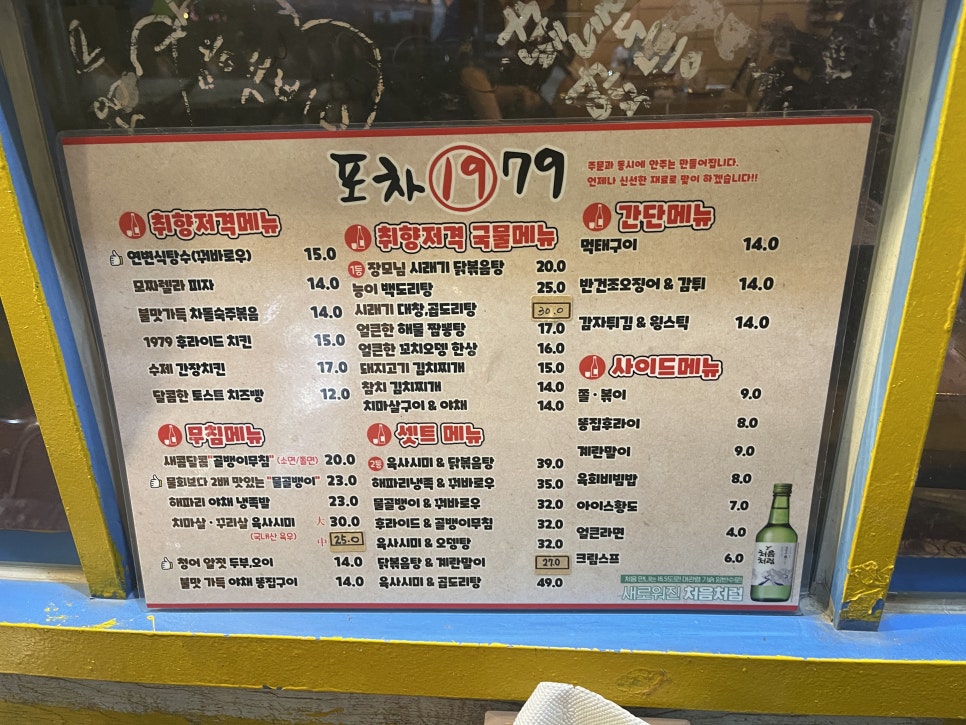 포차 1979
주문과 동시에 안주는 만들어집니다.
언제나 신선한 재료로 맞이 하겠습니다!!
취향저격메뉴
연변식탕수(꿔바로우) 15.0
모짜렐라 피자 14.0
불맛가득 차돌숙주볶음 14.0
1979 후라이드 치킨 15.0
수제 간장치킨 17.0
달콤한 토스트 치즈빵 12.0
무침메뉴
새콤달콤"골뱅이무침" (소면/쫄면) 20.0
물회보다 2배 맛있는 "물골뱅이" 23.0
해파리 야채 냉족발 23.0
치마살·꾸리살 육사시미 大 30.0
(국내산 육우) 中 25.0
청어 알젓 두부.오이 14.0
불맛 가득 야채 똥집구이 14.0
취향저격 국물메뉴
1등 장모님 시래기 닭볶음탕 20.0
능이 백도리탕 25.0
시래기 대창.곱도리탕 30.0
얼큰한 해물 짬뽕탕 17.0
얼큰한 꼬치오뎅 한상 16.0
돼지고기 김치찌개 15.0
참치 김치찌개 14.0
치마살구이 & 야채 14.0
셋트 메뉴
2등 육사시미 & 닭볶음탕 39.0
해파리냉족 & 꿔바로우 35.0
물골뱅이 & 꿔바로우 32.0
후라이드 & 골뱅이무침 32.0
육사시미 & 오뎅탕 32.0
닭볶음탕 & 계란말이 27.0
육사시미 & 곱도리탕 49.0
간단메뉴
먹태구이 14.0
반건조오징어 & 김튀 14.0
감자튀김 & 윙스틱 14.0
사이드메뉴
쫄·볶이 9.0
똥집후라이 8.0
계란말이 9.0
육회비빔밥 8.0
아이스황도 7.0
얼큰라면 4.0
크림스프 6.0
처음처럼
새로워진 처음처럼